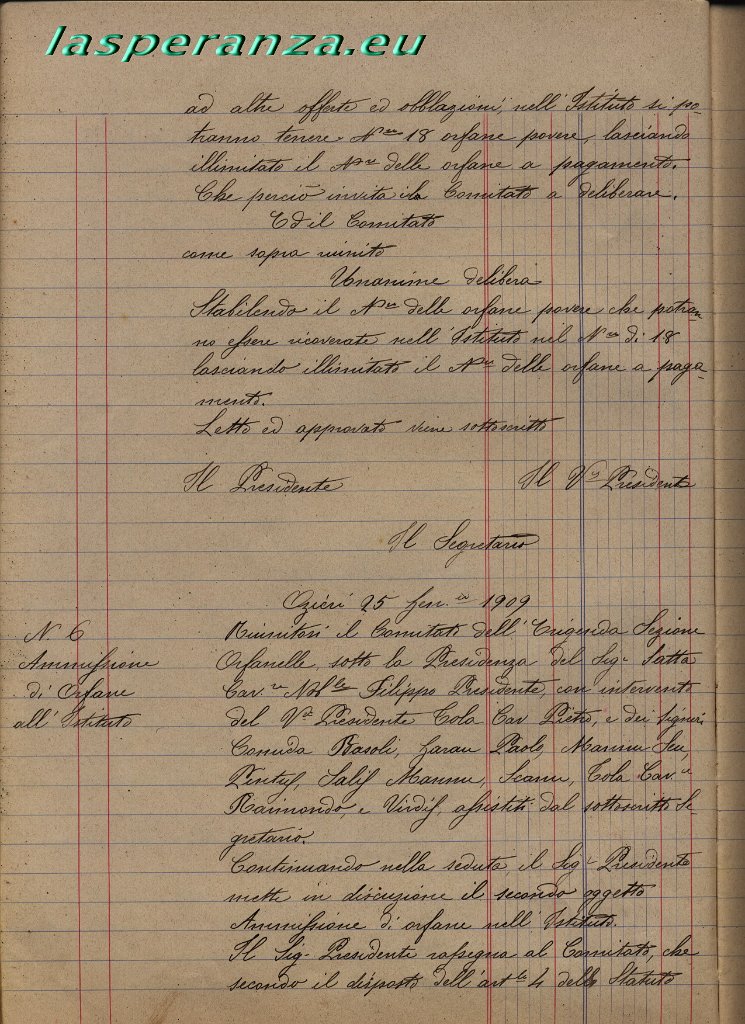 lasperanza.eu
ad altre offerte ed obblazioni, nell'Istituto si po-
tranno tenere Nro 18 orfane povere, lasciando
illimitato il Nro delle orfane a pagamento.
Che perciò invita il Comitato a deliberare.
Ed il Comitato
come sopra riunito
Unanime delibera
Stabilendo il Nro delle orfane povere che potran
no essere ricoverate nell'Istituto nel Nro di 18
lasciando illimitato il Nro delle orfane a paga-
mento.
Letto ed approvato viene sottoscritto
Il Presidente Il V Presidente
Il Segretario
Ozieri 25 1909
N. 6
Ammissione
di Orfane
all'Istituto
Riunitosi il Comitato dell'Erigenda Sezione
Orfanelle, sotto la Presidenza del Sigr Satta
Cavre Filippo Presidente, con intervento
del V Presidente Tola Cav Pietro, e dei Signori
Comida Basoli, Farau Paolo, Mannu
Pintus, Salis Mannu, Scanu, Tola Cavre
Raimondo, e Virdis, assistiti dal sottoscritto Se-
gretario.
Continuando nella seduta il Sigr Presidente
mette in discuzione il secondo oggetto
Ammissione di orfane nell'Istituto.
Il Sigr Presidente rassegna al Comitato, che
secondo il disposto dell'artlo 4 dello Statuto